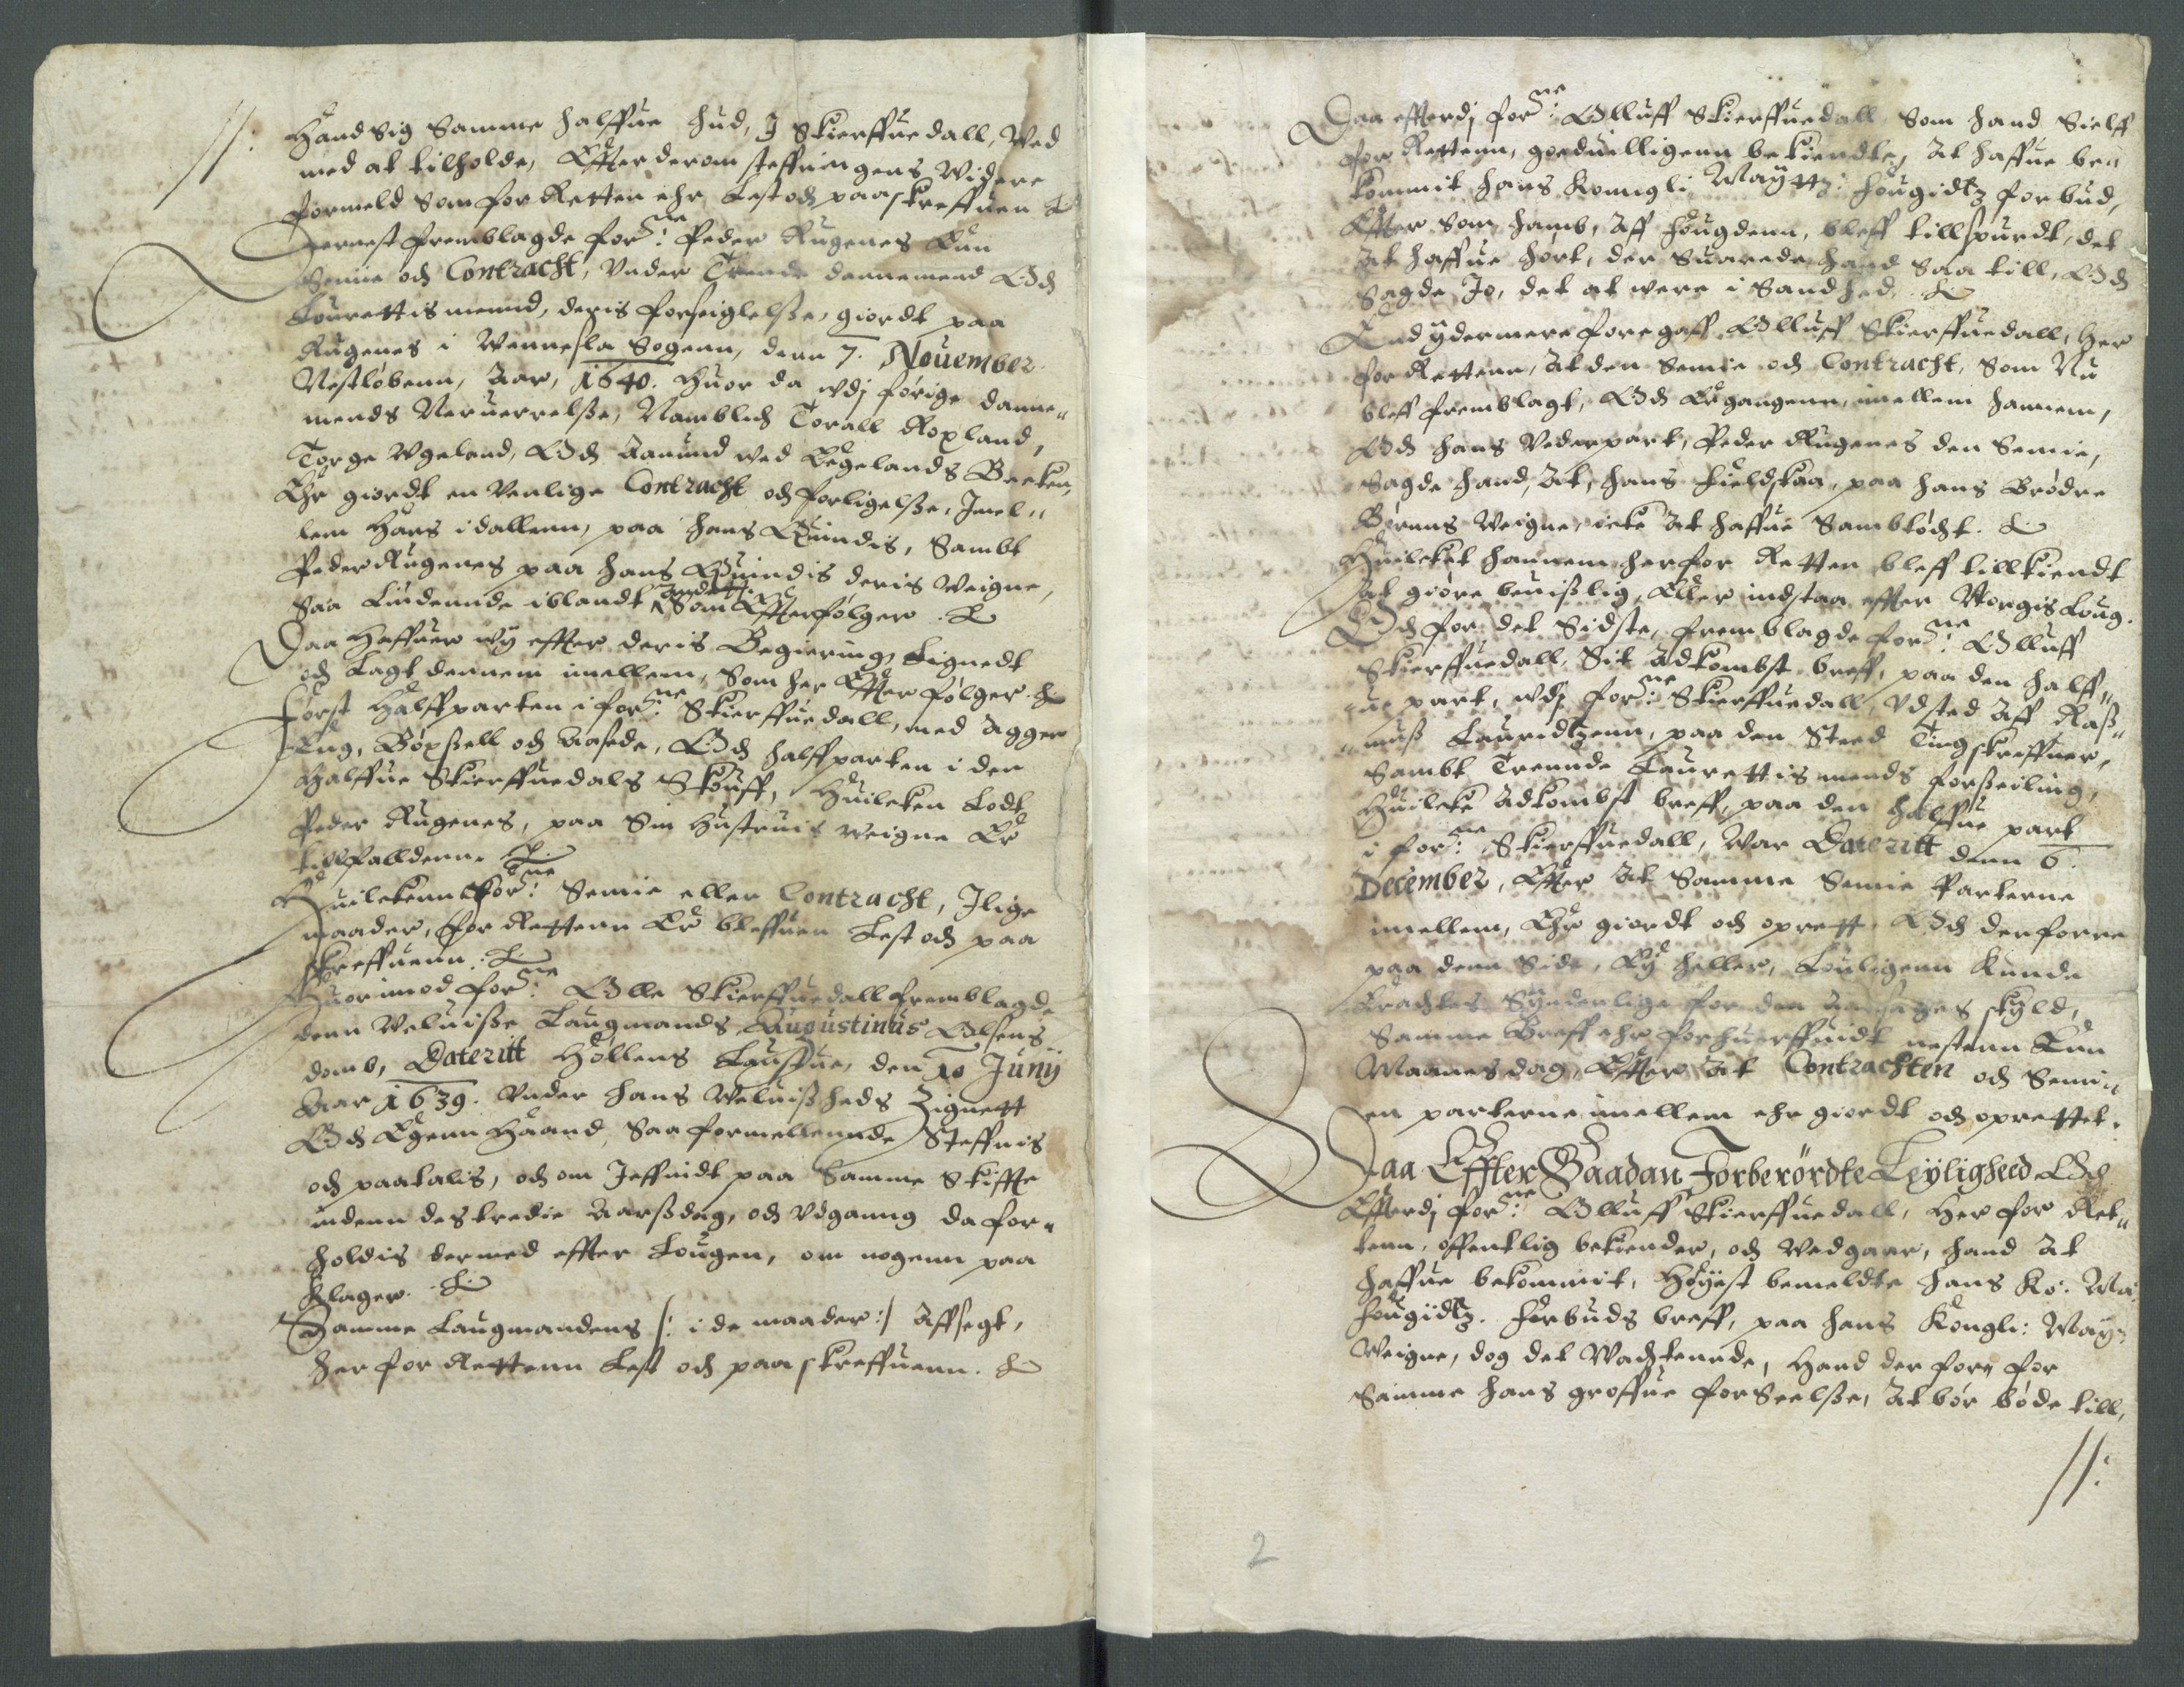 //: Hand Sig Samme halffue hud, J Skierffuedall, Ved
med at tilholde, Effter derom steffningens Widere
formeld Som for Retten ehr Lest och paaskreffuen &
Dernest fremblagde for:ne Peder Rugenes Enn
Semie och Contracht, Vnder Trende dannemend Och
Lourettis mennd, deris forseiglelsse, giordt paa
Rugenes i Wennesla Sogenn, denn 7. Nouember
Nestløbenn, Aar, 1640. Huor da vdj førige danne„
mends Neruerrelsse, Namblich Torall Roxland,
Torge Vgeland, Och Aanund ved Egelands Brecken,
Ehr giordt en Venlige Contracht och forligelsse, Jmel„
lem Hans idallenn, paa hans Quindis, Sambt
Peder Rugenes paa hans Quindis deris Weigne,
Saa Liudennde iblandt andett Som Effterfølger. &
Daa Haffuer wy effter deris Begiering, Lignedt
och Lagt dennem imellem, Som her Effter følger. &
Først Halffparten i for:ne Skierffuedall, med Agger
Eng, Bøxsell och Aasede, Och halffparten i den
Halffue Skierffuedals Skouff, Huilcken Lodt
Peder Rugenes, paa Sin Hustruis Weigne Er
tillfalldenn. &
Huilckenn for:ne Semie eller Contracht, Jlige
maader, for Rettenn Er bleffuen Lest och paa
skreffuenn. &
Huorimod for:ne Olle Skierffuedall fremblagde
denn Veluisse Laugmands Augustinus Olsens
domb, Dateritt Hollens Lauffue, den 10 Junij
Aar 1639. Vnder hans Veluissheds Zignett
Och Egenn Haand, Saa formellennde Steffnis
och paatalis, och om Jeffnidt paa Samme Skiffte
indenn des tredie Aarsdag, och Vdganng da for„
holdis dermed effter Lougen, om nogenn paa
klager. &
Samme Laugmandens /: i de maader :/ Affsegt,
her for Rettenn Lest och paaskreffuenn. &
Daa effterdj for:ne Olluff Skierffuedall Som hand Sielff
for Rettenn, goeduilligenn bekiendte, At haffue be„
kommit hans Konngli Maytz: fougidtz forbud,
Effter Som hamb, Aff fougdenn, bleff tillspurdt, det
At haffue hørt, der Suarede hand Saa till, Och
Sagde Jo, det at were i Sandhed. &
End ydermere foregaff Olluff Skierffuedall, Her
for Rettenn, At den Semie och Contracht, Som Nu
bleff fremblagt, Och Ergangenn, imellem hannem,
Och hans Vederpart, Peder Rugenes den Semie,
Sagde hand, At, hans Fieldskaa, paa hans Brødre
Børnns Weigne, icke At haffue Sambtøcht. &
Huilcket hannem her for Retten bleff tillkiendt
At giøre beuisslig, Eller indstaa effter Norgis Loug.
Och for det Sidste, fremblagde for:ne Olluff
Skierffuedall, Sit Adkombst breff, paa den halff„
ue part, vdj for:ne Skierffuedall, Vdsted Aff Rass„
muss Lauridtzenn, paa den Steed Tingskriffuer,
Sambt Trennde Laurettis mends forsseiling,
Huilcke Adkombst breff, paa den halffue part
i for:ne Skierffuedall, War Dateritt denn 6.
December, Effter At Samme Semie Parterne
imellem, Ehr giordt och oprett, Och derforre
paa denn Side, Ey heller, Louligenn Kunde
Eractes Synderlige for den Aarsages skyld,
Samme Breff ehr forhuerffuidt nestenn Enn
Maanedsdag, Effter At Contrachten och Semi„
en parterne imellem ehr giordt och oprettet.
Daa Effter Saadan Forberørdte Leyligheed Och
Effterdj for:ne Olluff Skierffuedall, Her for Ret„
tenn, offentlig bekiender, och Vedgaar, hand At
haffue bekommit, Høyest bemeldte hans Ko: Ma:
fougidtz. Forbuds breff, paa hans Kongli: May:
Weigne, dog det Wachtennde, Hand der fore for
Samme hans groffue forSeelsse, At bør bøde till,
//:
2